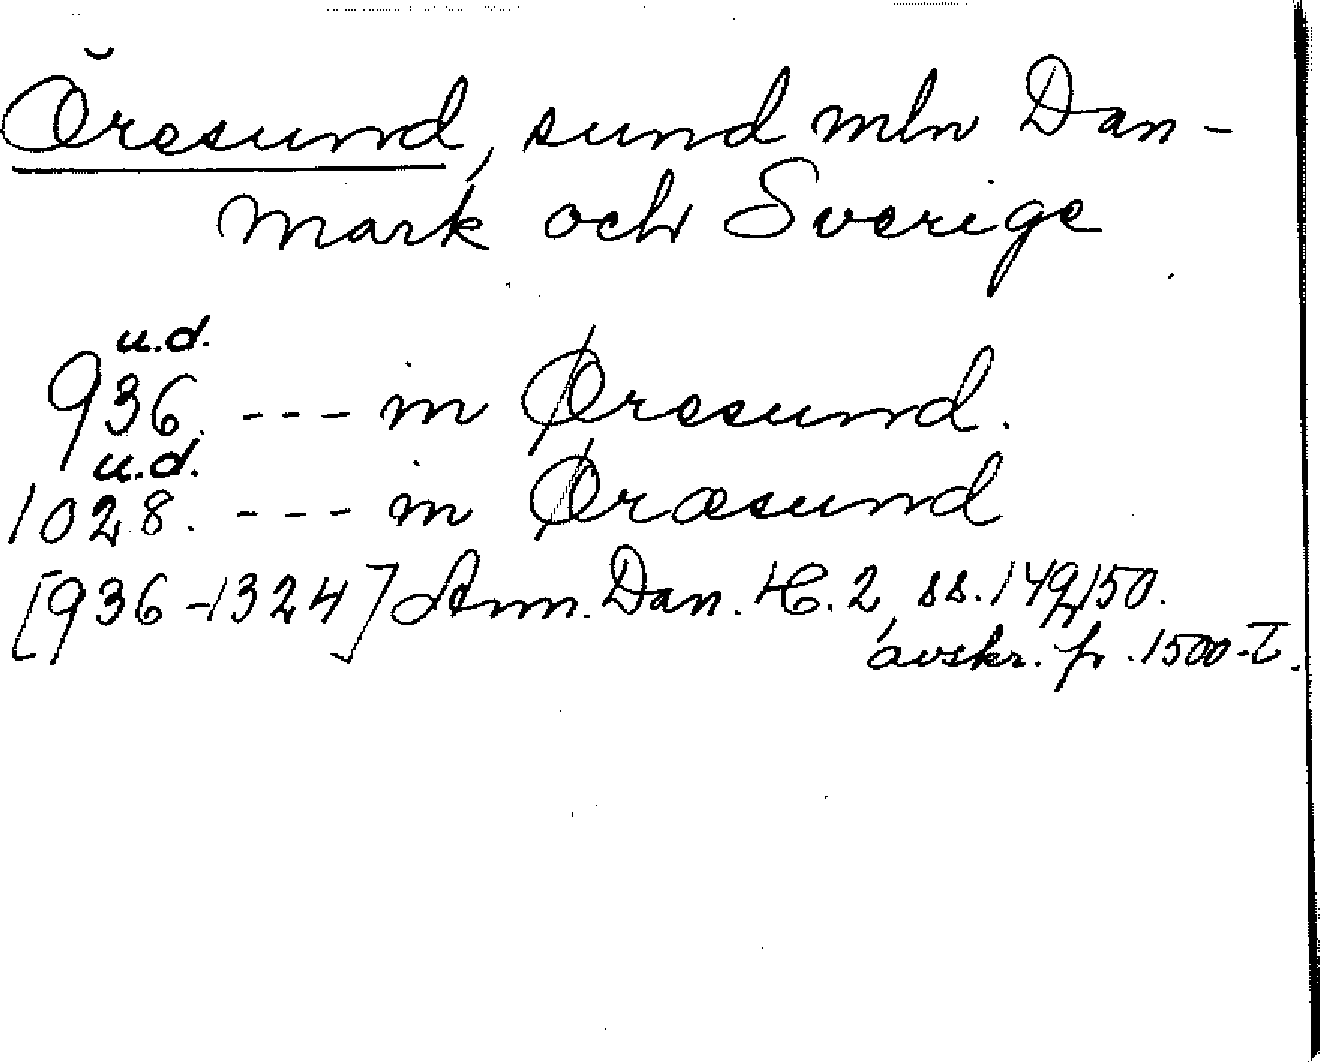 Öresund, sund mln Dan-
mark och Sverige
u.d.
936. --- in Øresund.
u.d.
1028. --- in Øræsund
[936-1324] Ann. Dan. H. 2, ss. 149, 150.
avskr. fr. 1500-T.